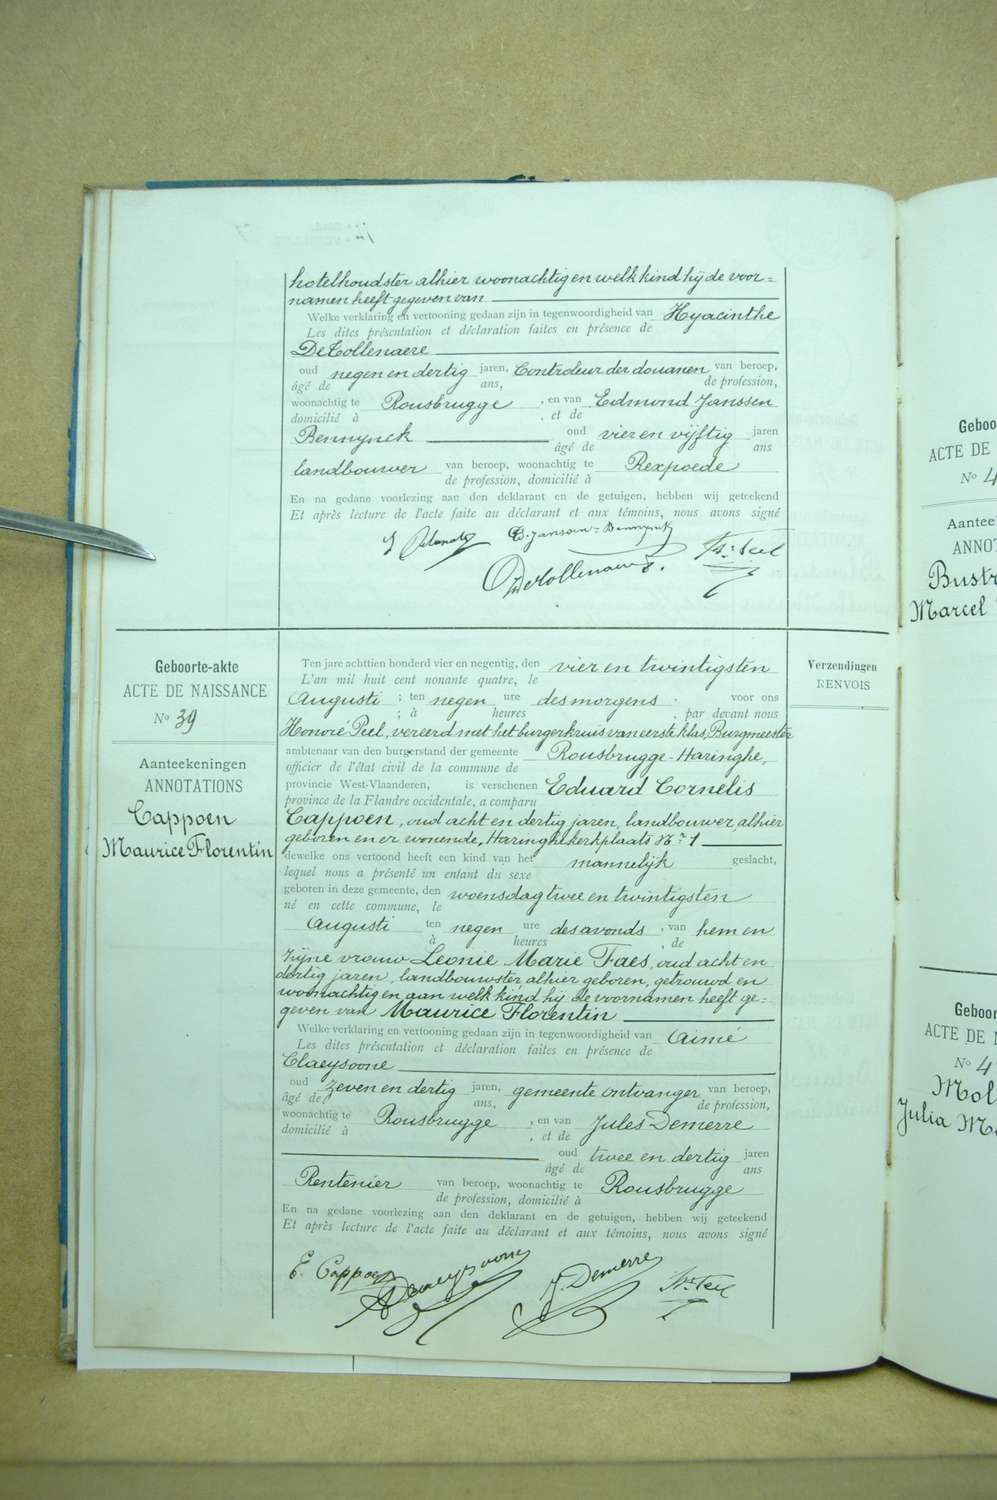 hotelhoudster alhier woonachtig en welk kind hij de voor=
namen heeft gegeven van
Welke verklaring en vertooning gedaan zijn in tegenwoordigheid van Hyacinthe
Les dites présentation et déclaration faites en présence de
DeCollenaere
oud negen en dertig jaren, Controleur der douanen van beroep,
âgé de ans, de profession,
woonachtig te Rousbrugge , en van Edmond Janssen
domicilié à , et de
Bennynck oud vier en vijftig jaren
âgé de ans
landbouwer van beroep, woonachtig te Rexpoede
de profession, domicilié à
En na gedane voorlezing aan den deklarant en de getuigen, hebben wij geteekend
Et après lecture de l'acte faite au déclarant et aux témoins, nous avons signé
E. Janssen-Bennynck
DeCollenaere
Geboorte-akte
ACTE DE NAISSANCE
No 39
Aanteekeningen
ANNOTATIONS
Cappoen
Maurice Florentin
Ten jare achttien honderd vier en negentig, den vier en twintigsten
L'an mil huit cent nonante quatre, le
Augusti ; ten negen ure des morgens voor ons
; à heures , par devant nous
Honoré Peel, vereerd met het burgerkruis van eerste klas, Burgmeester
ambtenaar van den burgerstand der gemeente Rousbrugge-Haringhe,
officier de l'état civil de la commune de
provincie West-Vlaanderen, is verschenen Eduard Cornelis
province de la Flandre occidentale, a comparu
Cappoen, oud acht en dertig jaren, landbouwer, alhier
geboren en er wonende, Haringhekerkplaats No 1
dewelke ons vertoond heeft een kind van het mannelijk geslacht,
lequel nous a présenté un enfant du sexe
geboren in deze gemeente, den woensdag twee en twintigsten
né en cette commune, le
Augusti ten negen ure des avonds , van hem en
à heures , de
zijne vrouw Leonie Marie Faes, oud acht en
dertig jaren, landbouwster alhier geboren, getrouwd en
woonachtig en aan welk kind hij de voornamen heeft ge=
geven van Maurice Florentin
Welke verklaring en vertooning gedaan zijn in tegenwoordigheid van Aimé
Les dites présentation et déclaration faites en présence de
Claeysoone
oud zeven en dertig jaren, gemeente ontvanger van beroep,
âgé de ans, de profession,
woonachtig te Rousbrugge , en van Jules Demerre
domicilié à , et de
oud twee en dertig jaren
âgé de ans
Rentenier van beroep, woonachtig te Rousbrugge
de profession, domicilié à
En na gedane voorlezing aan den deklarant en de getuigen, hebben wij geteekend
Et après lecture de l'acte faite au déclarant et aux témoins, nous avons signé
E. Cappoen
A Claeysoone
J. Demerre
Hre Peel
Verzendingen
RENVOIS
Geboor
ACTE DE
No 4
Aantee
ANNOT
Bustr
Marcel
Geboor
ACTE DE
No 4
Mol
Julia M